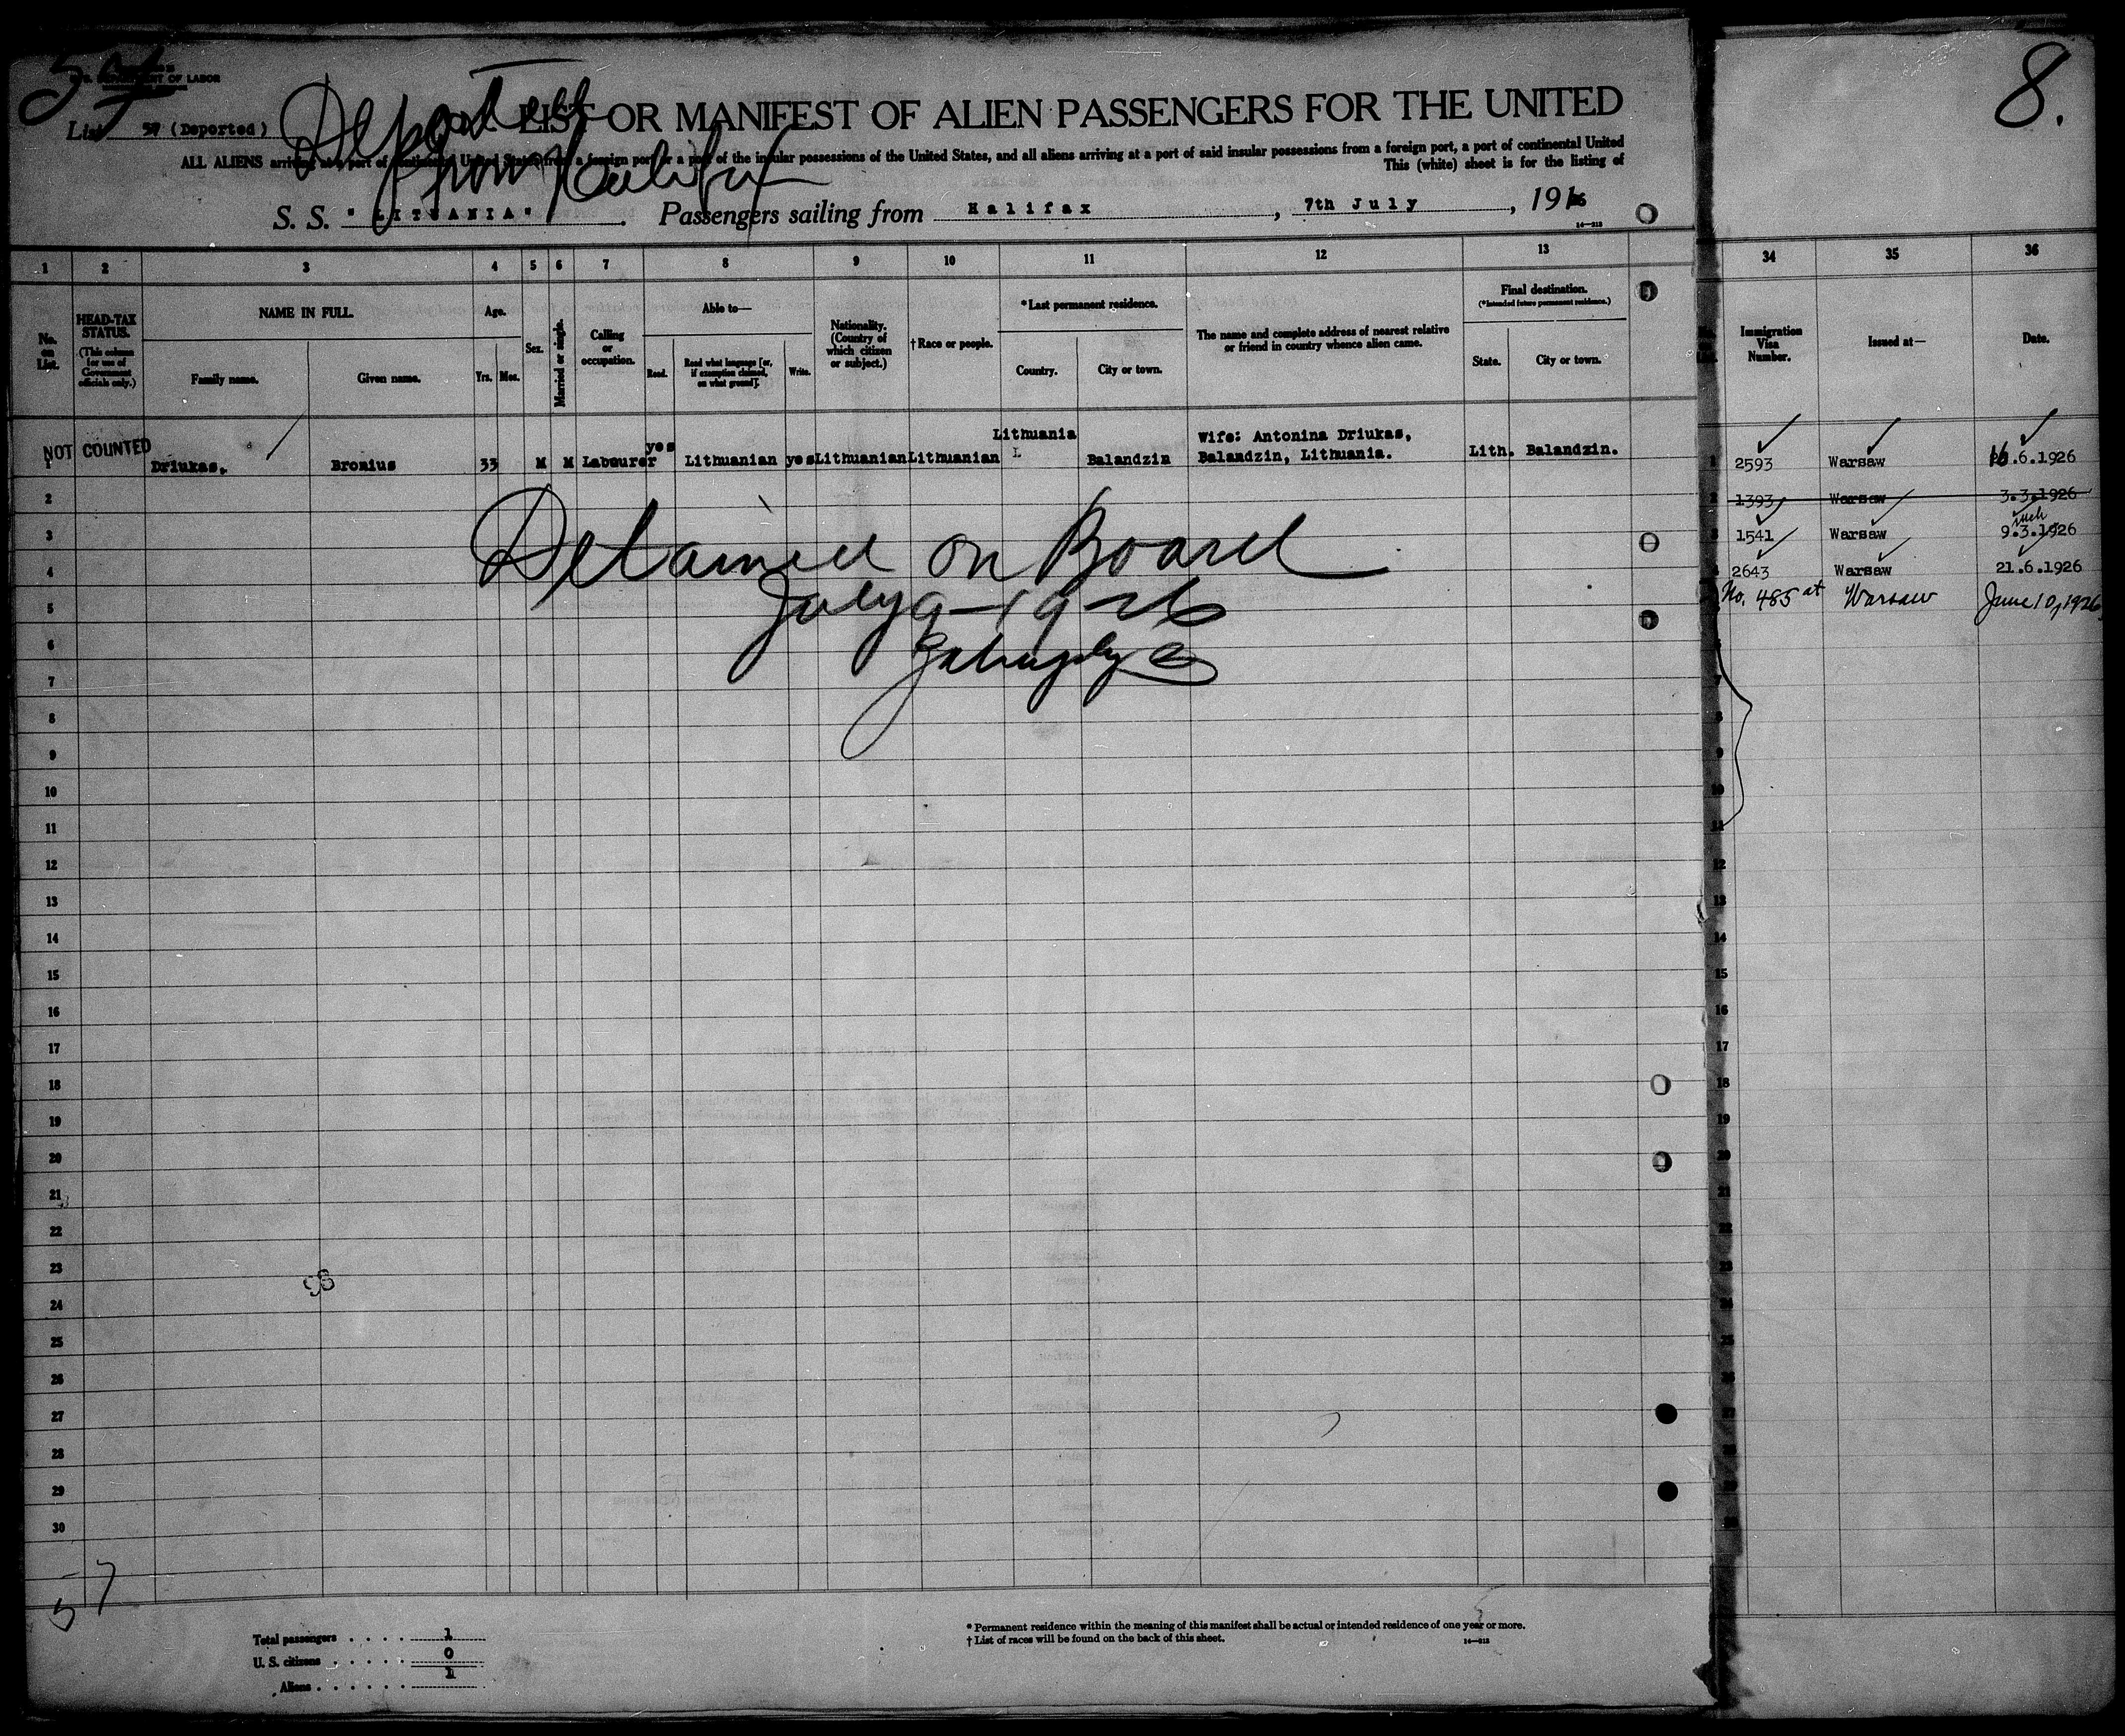 57
U.S. DEPARTMENT OF LABOR
List 57 (Deported)
Deported
from Halifax
LIST OR MANIFEST OF ALIEN PASSENGERS FOR THE UNITED
ALL ALIENS arriving at a port of continental United States from a foreign port or a port of the insular possessions of the United States, and all aliens arriving at a port of said insular possessions from a foreign port, a port of continental United
This (white) sheet is for the listing of
S. S. "LITUANIA" Passengers sailing from Halifax, 7th July, 1926
14—213
1 2 3 4 5 6 7 8 9 10 11 12 13
No. on List.
HEAD-TAX STATUS. (This column for use of Government officials only.)
NAME IN FULL.
Family name. Given name.
Age.
Yrs. Mos.
Sex.
Married or single.
Calling or occupation.
Able to—
Read. Read what language [or, if exemption claimed, on what ground]. Write.
Nationality. (Country of which citizen or subject.)
†Race or people.
*Last permanent residence.
Country. City or town.
The name and complete address of nearest relative or friend in country whence alien came.
Final destination.
(*Intended future permanent residence.)
State. City or town.
NOT COUNTED
1 Driukas, Bronius 33 M M Labourer yes Lithuanian yes Lithuanian Lithuanian Lithuania Balandzin Wife: Antonina Driukas, Balandzin, Lithuania. Lith. Balandzin.
L
2
3
4
5
6
7
8
9
10
11
12
13
14
15
16
17
18
19
20
21
22
23
24
25
26
27
28
29
30
Detained on Board
July 9-1926
98
57
Total passengers . . . . 1
U. S. citizens . . . . . 0
Aliens . . . . . . 1
* Permanent residence within the meaning of this manifest shall be actual or intended residence of one year or more.
† List of races will be found on the back of this sheet.
14—213
8.
34 35 36
Immigration Visa Number. Issued at— Date.
1 2593 Warsaw 16.6.1926
2 1393 Warsaw 3.3.1926
3 1541 Warsaw 9.3.1926
4 2643 Warsaw 21.6.1926
No. 485 at Warsaw June 10, 1926
6
7
8
9
10
11
12
13
14
15
16
17
18
19
20
21
22
23
24
25
26
27
28
29
30